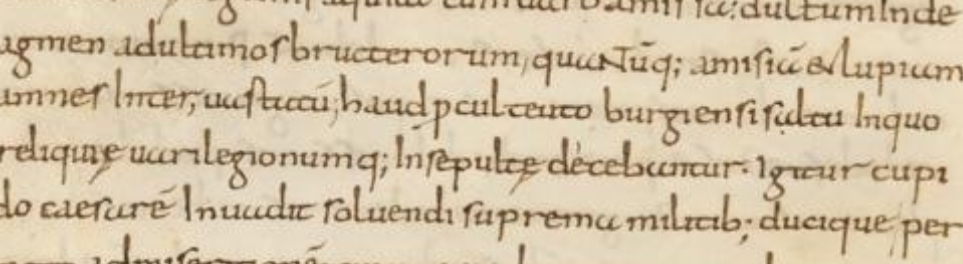 cum uaro amissa: ductum Inde
agmen adultimos bructerorum, quaNtūq; amisiā & lupiam
amnes Inter, uastatū, haud ꝓcul teuto burgiensi saltu Inquo
reliquię uari legionumq; Insepultę dècebantur. Igitur cupi
do caesarē Inuadit soluendi suprema militib; ducique per